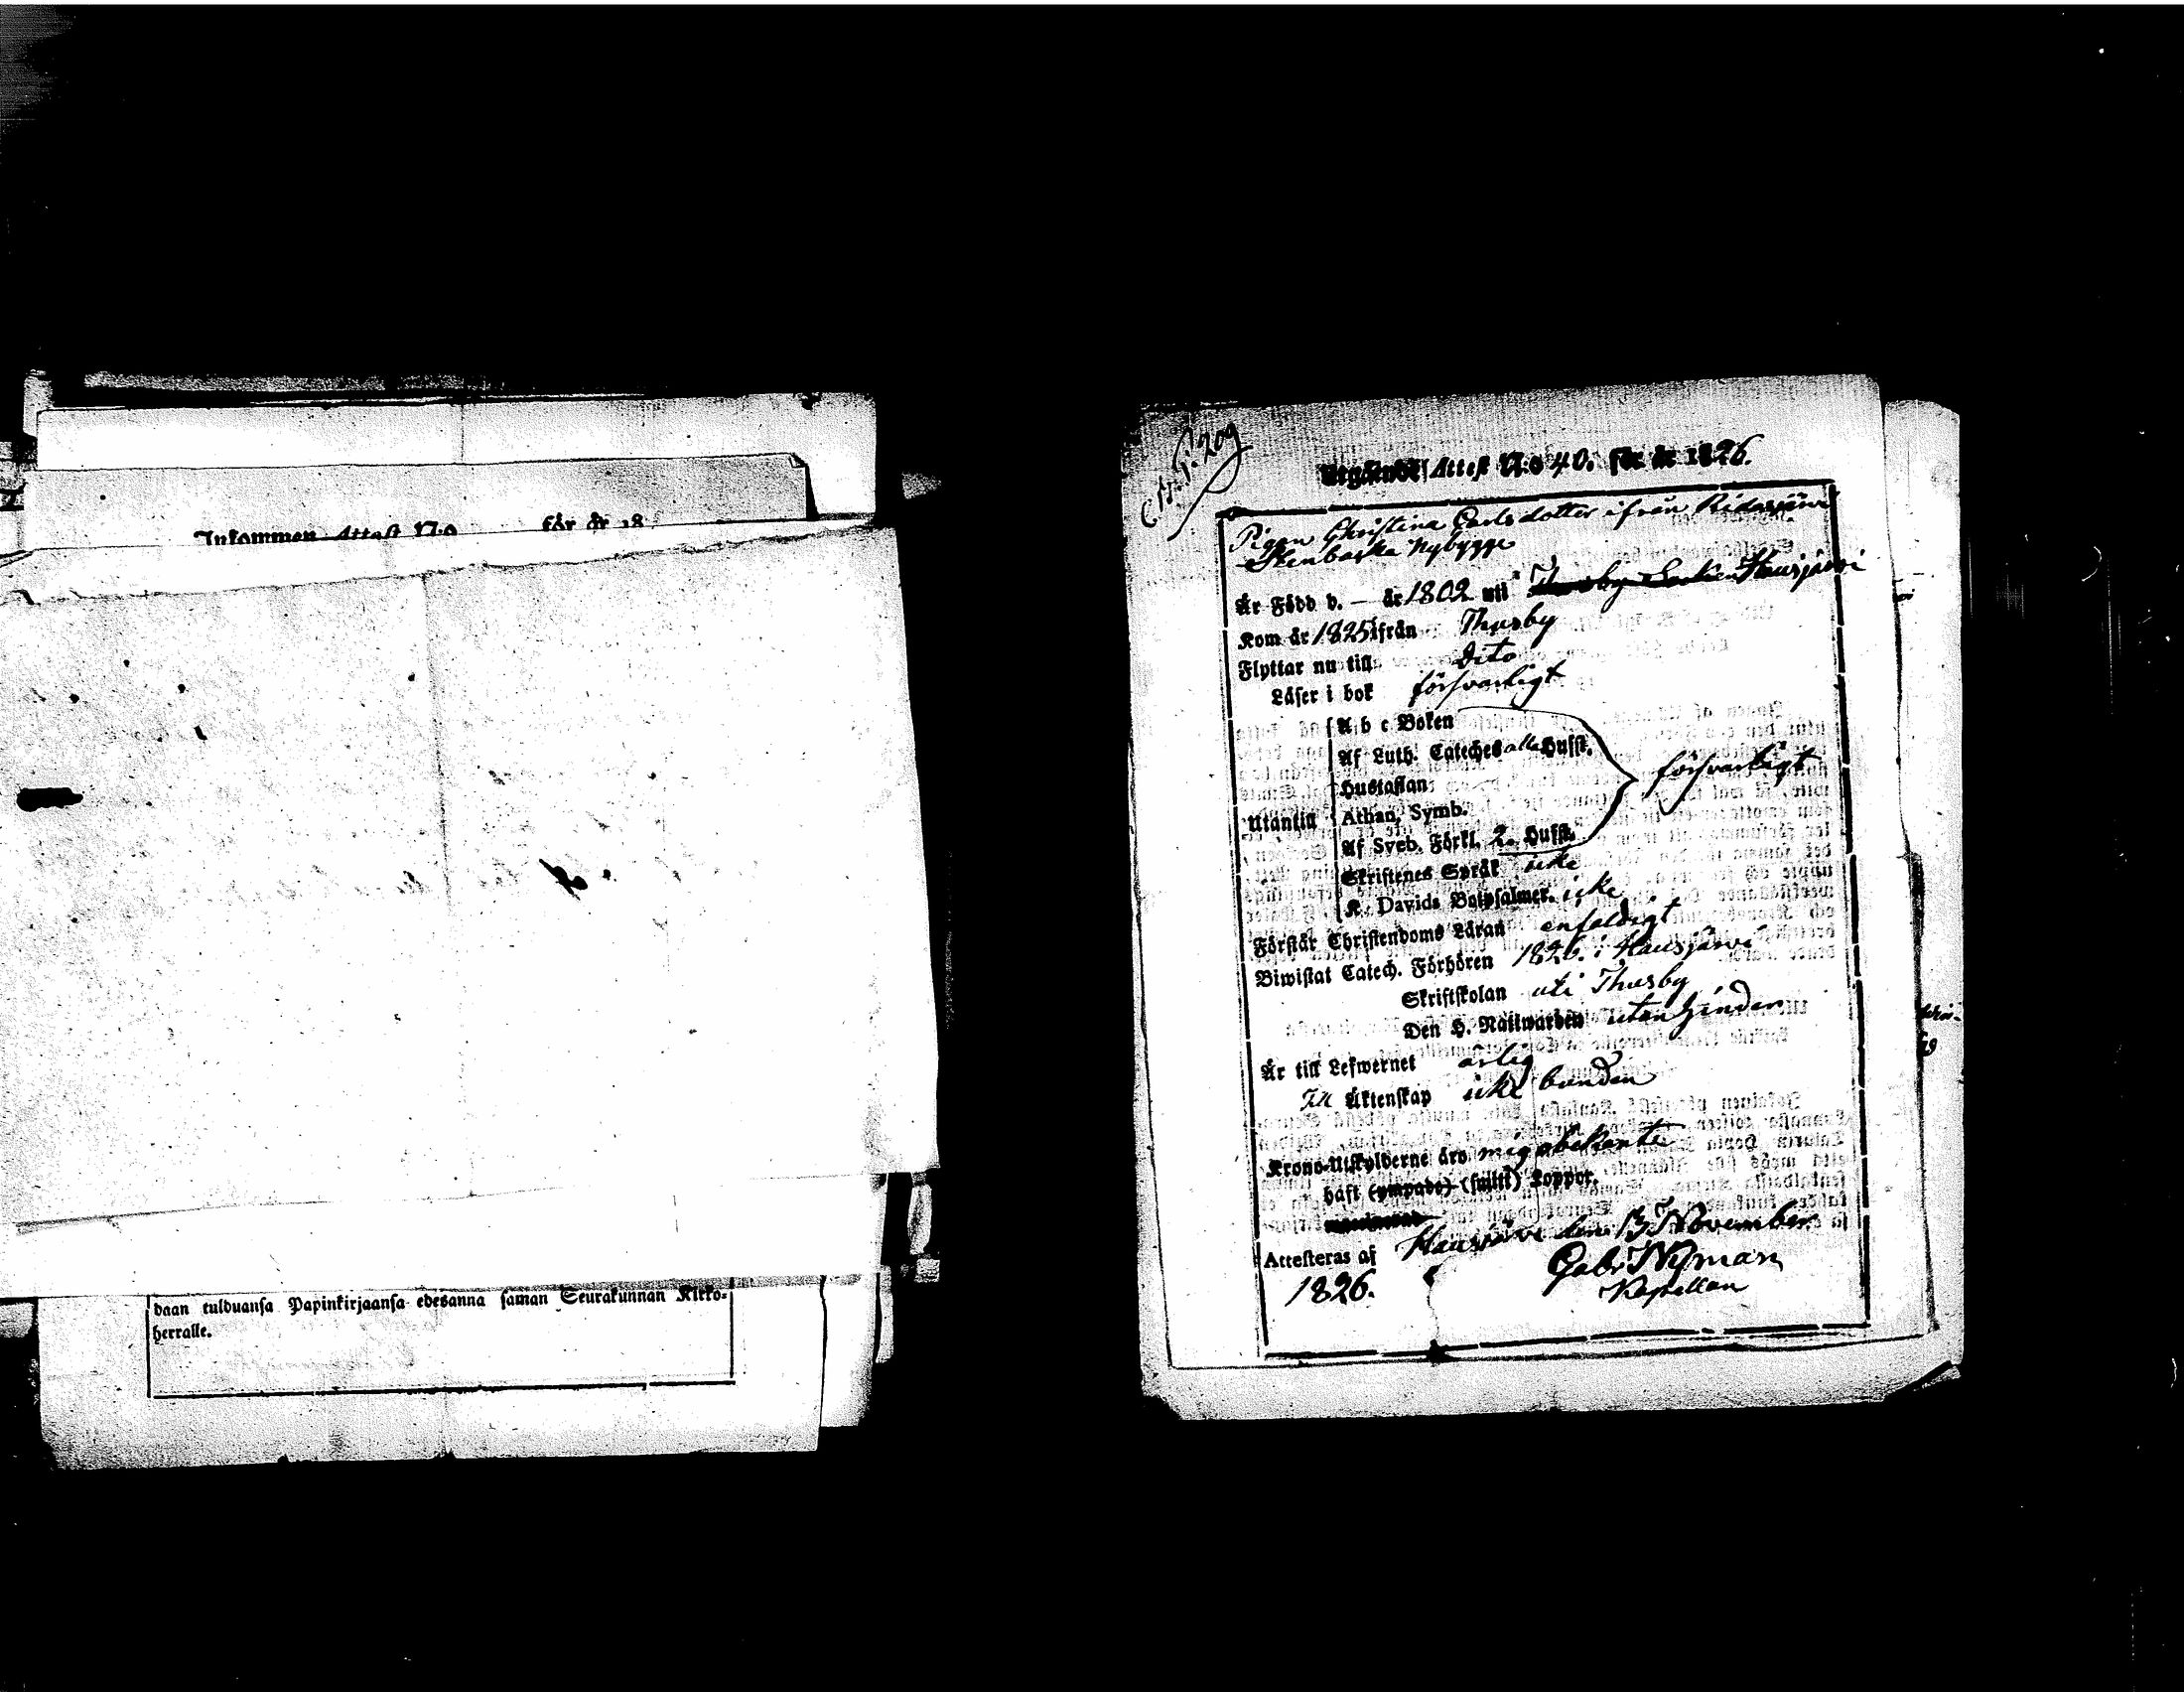 Inkommen Attest N:o för år 18
daan tulduansa Papinkirjaansa edesanna saman Seurakunnan Kirko-
herralle.
P. 209
Utgående Attest N:o 40. för år 1826.
Pigan Christina Carlsdotter ifrån Ridasjärvi
Stenbacka Nybygge
Är Född d. — år 1802 uti Hausjärvi
Kom år 1825 ifrån Thusby
Flyttar nu till dito
Läser i bok försvarligt
Utantill
A b c Boken
Af Luth. Cateches alla Hufst.
Hustaflan
Athan. Symb.
Af Sveb. Förkl. 2. Hufst.
försvarligt
Skriftenes Språk icke
K. Davids Botpsalmer. icke
Förstår Christendoms Läran enfaldigt
Biwistat Catech. Förhören 1826. i Hausjärvi
Skriftskolan uti Thusby
Den H. Nattwarden utan hinder
Är till Lefwernet ärlig
Till Äktenskap icke bunden
Krono-Utskylderne äro mig obekanta
haft (ympade) (smitt) Koppor.
Attesteras af Hausjärvi den 13 November
1826.
Gabr Nyman
Kapellan